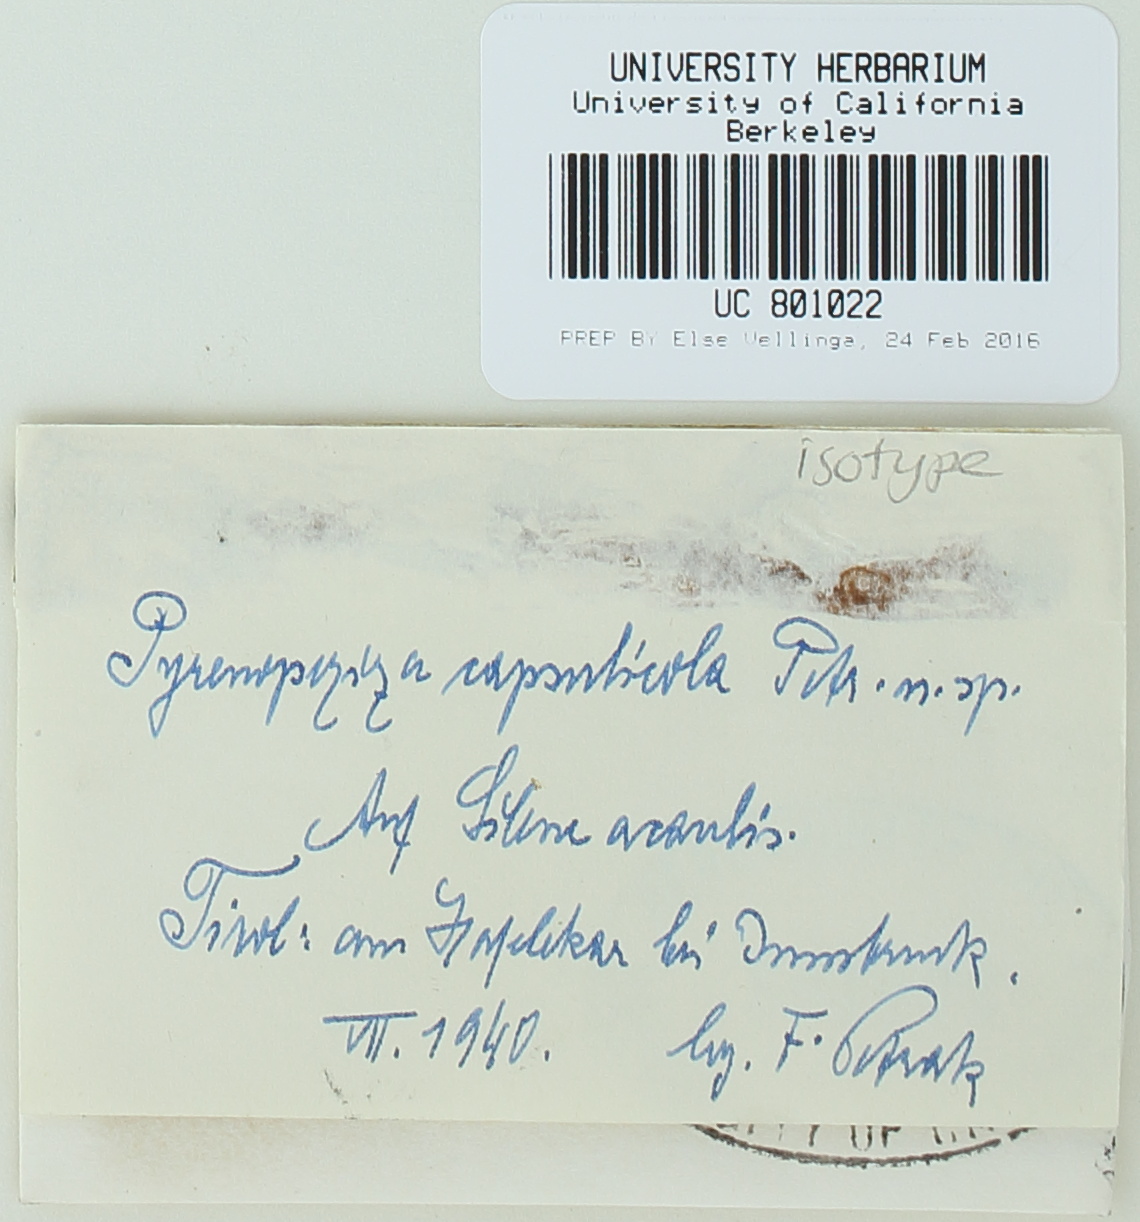 UNIVERSITY HERBARIUM
University of California
Berkeley
UC 801022
PREP BY Else Vellinga, 24 Feb 2016
isotype
Pyrenopeziza capsulicola Petr. n. sp.
Auf Silene acaulis.
Tirol: am Hafelekar bei Innsbruck.
VII. 1940. leg. F. Petrak